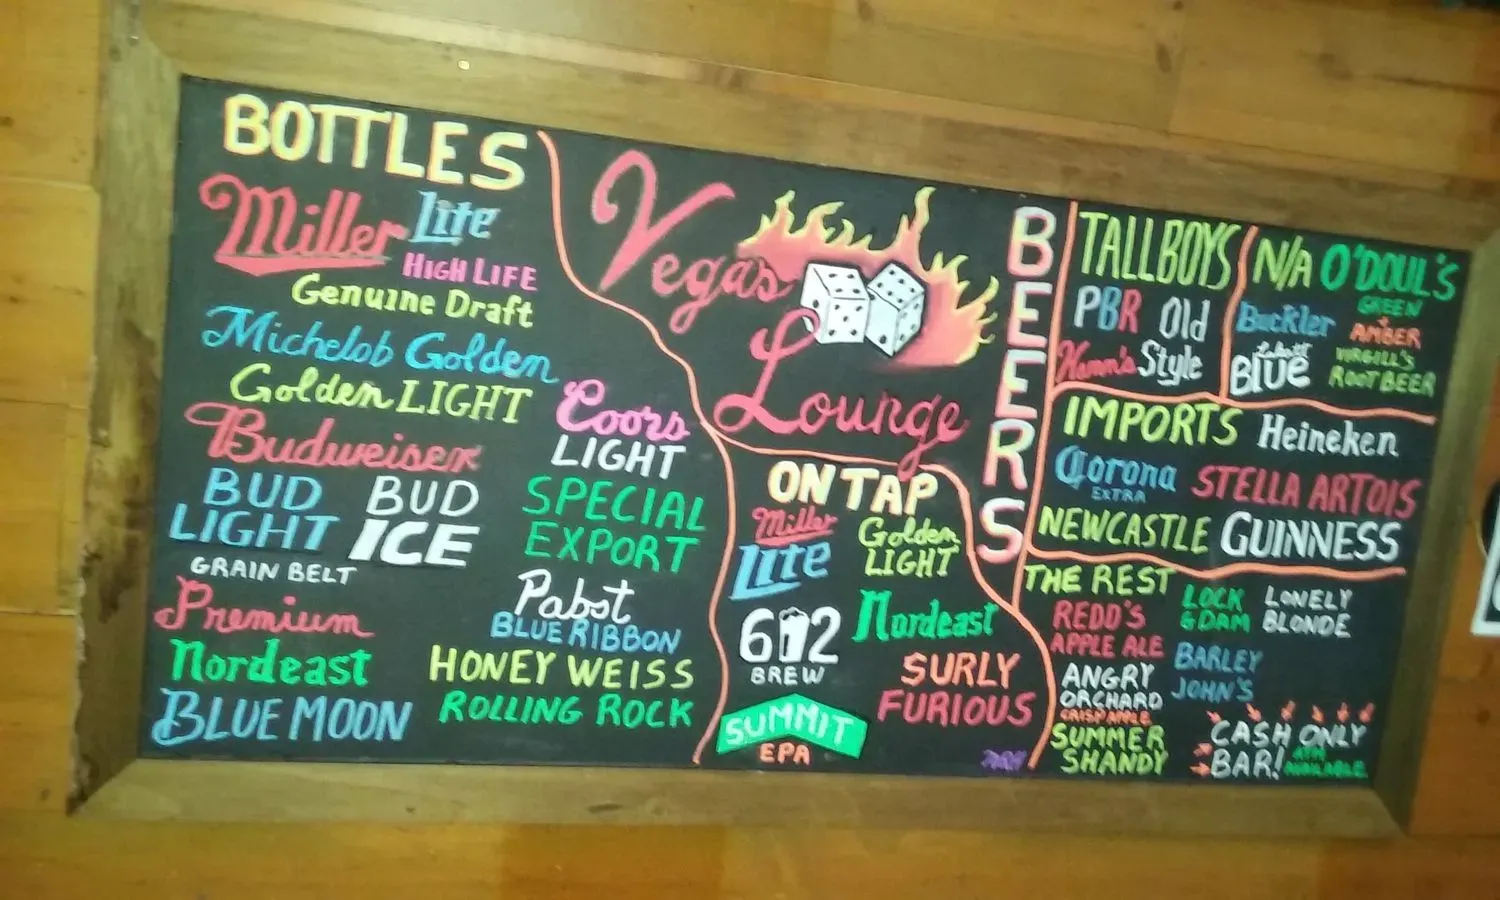 BOTTLES
Miller Lite
HIGH LIFE
Genuine Draft
Michelob Golden
Golden LIGHT
Coors
LIGHT
Budweiser
BUD
LIGHT
BUD
ICE
SPECIAL
EXPORT
GRAIN BELT
Premium
Nordeast
Pabst
BLUE RIBBON
HONEY WEISS
BLUE MOON
ROLLING ROCK
Vegas
Lounge
ON TAP
Miller
Lite
Golden
LIGHT
612
BREW
Nordeast
SURLY
FURIOUS
SUMMIT
EPA
BEERS
TALLBOYS
PBR
Old
Style
Hamm's
N/A O'DOUL'S
GREEN
+
AMBER
Buckler
Labatt
BLUE
VIRGILL'S
ROOT BEER
IMPORTS Heineken
Corona
EXTRA
STELLA ARTOIS
NEWCASTLE GUINNESS
THE REST
REDD'S
APPLE ALE
LOCK
& DAM
LONELY
BLONDE
ANGRY
ORCHARD
CRISP APPLE
BARLEY
JOHN'S
SUMMER
SHANDY
CASH ONLY
BAR!
ATM
AVAILABLE